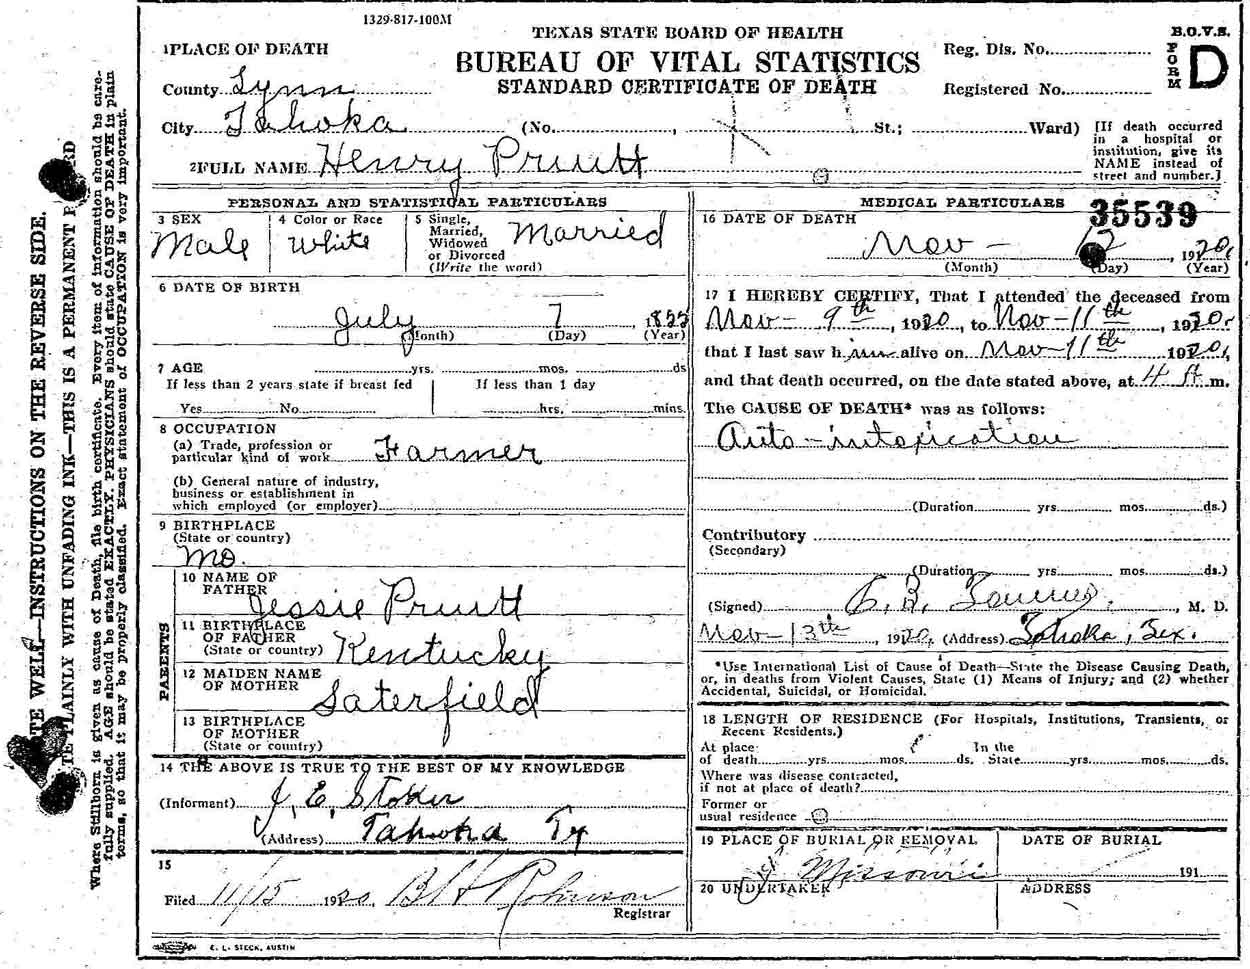 1329-817-100M
TEXAS STATE BOARD OF HEALTH
BUREAU OF VITAL STATISTICS
STANDARD CERTIFICATE OF DEATH
Reg. Dis. No.
Registered No.
B.O.V.S.
FORM D
1 PLACE OF DEATH
County Lynn
City Tahoka (No. , St.; Ward)
[If death occurred
in a hospital or
institution, give its
NAME instead of
street and number.]
2 FULL NAME Henry Pruitt
PERSONAL AND STATISTICAL PARTICULARS
3 SEX
Male
4 Color or Race
White
5 Single,
Married,
Widowed
or Divorced
(Write the word)
Married
6 DATE OF BIRTH
July 7, 1855
(Month) (Day) (Year)
7 AGE yrs. mos. ds
If less than 2 years state if breast fed
Yes No
If less than 1 day
hrs. mins.
8 OCCUPATION
(a) Trade, profession or
particular kind of work Farmer
(b) General nature of industry,
business or establishment in
which employed (or employer)
9 BIRTHPLACE
(State or country)
Mo.
PARENTS
10 NAME OF
FATHER
Jessie Pruitt
11 BIRTHPLACE
OF FATHER
(State or country) Kentucky
12 MAIDEN NAME
OF MOTHER
Saterfield
13 BIRTHPLACE
OF MOTHER
(State or country)
14 THE ABOVE IS TRUE TO THE BEST OF MY KNOWLEDGE
(Informent) J. E. Stoker
(Address) Tahoka Tx
15
Filed 11/15 1920. B H Robinson
Registrar
E. L. STECK, AUSTIN
MEDICAL PARTICULARS
35539
16 DATE OF DEATH
Nov - 12, 1920,
(Month) (Day) (Year)
17 I HEREBY CERTIFY, That I attended the deceased from
Nov - 9th, 1920, to Nov - 11th, 1920.
that I last saw him alive on Nov - 11th 1920,
and that death occurred, on the date stated above, at 4 m.
The CAUSE OF DEATH* was as follows:
Auto-intoxication
(Duration yrs. mos. ds.)
Contributory
(Secondary)
(Duration yrs. mos. ds.)
(Signed) , M. D.
Nov - 13th, 1920, (Address) Tahoka, Tex.
*Use International List of Cause of Death—State the Disease Causing Death,
or, in deaths from Violent Causes, State (1) Means of Injury; and (2) whether
Accidental, Suicidal, or Homicidal.
18 LENGTH OF RESIDENCE (For Hospitals, Institutions, Transients, or
Recent Residents.)
At place
of death yrs. mos. ds.
In the
State yrs. mos. ds.
Where was disease contracted,
if not at place of death?
Former or
usual residence
19 PLACE OF BURIAL OR REMOVAL
Missouri
DATE OF BURIAL
191
20 UNDERTAKER
ADDRESS
WELL—INSTRUCTIONS ON THE REVERSE SIDE.
PLAINLY WITH UNFADING INK—THIS IS A PERMANENT
Where Stillborn is given as cause of Death, file birth certificate. Every item of information should be care-
fully supplied. AGE should be stated EXACTLY. PHYSICIANS should state CAUSE OF DEATH in plain
terms, so that it may be properly classified. Exact statement of OCCUPATION is very important.